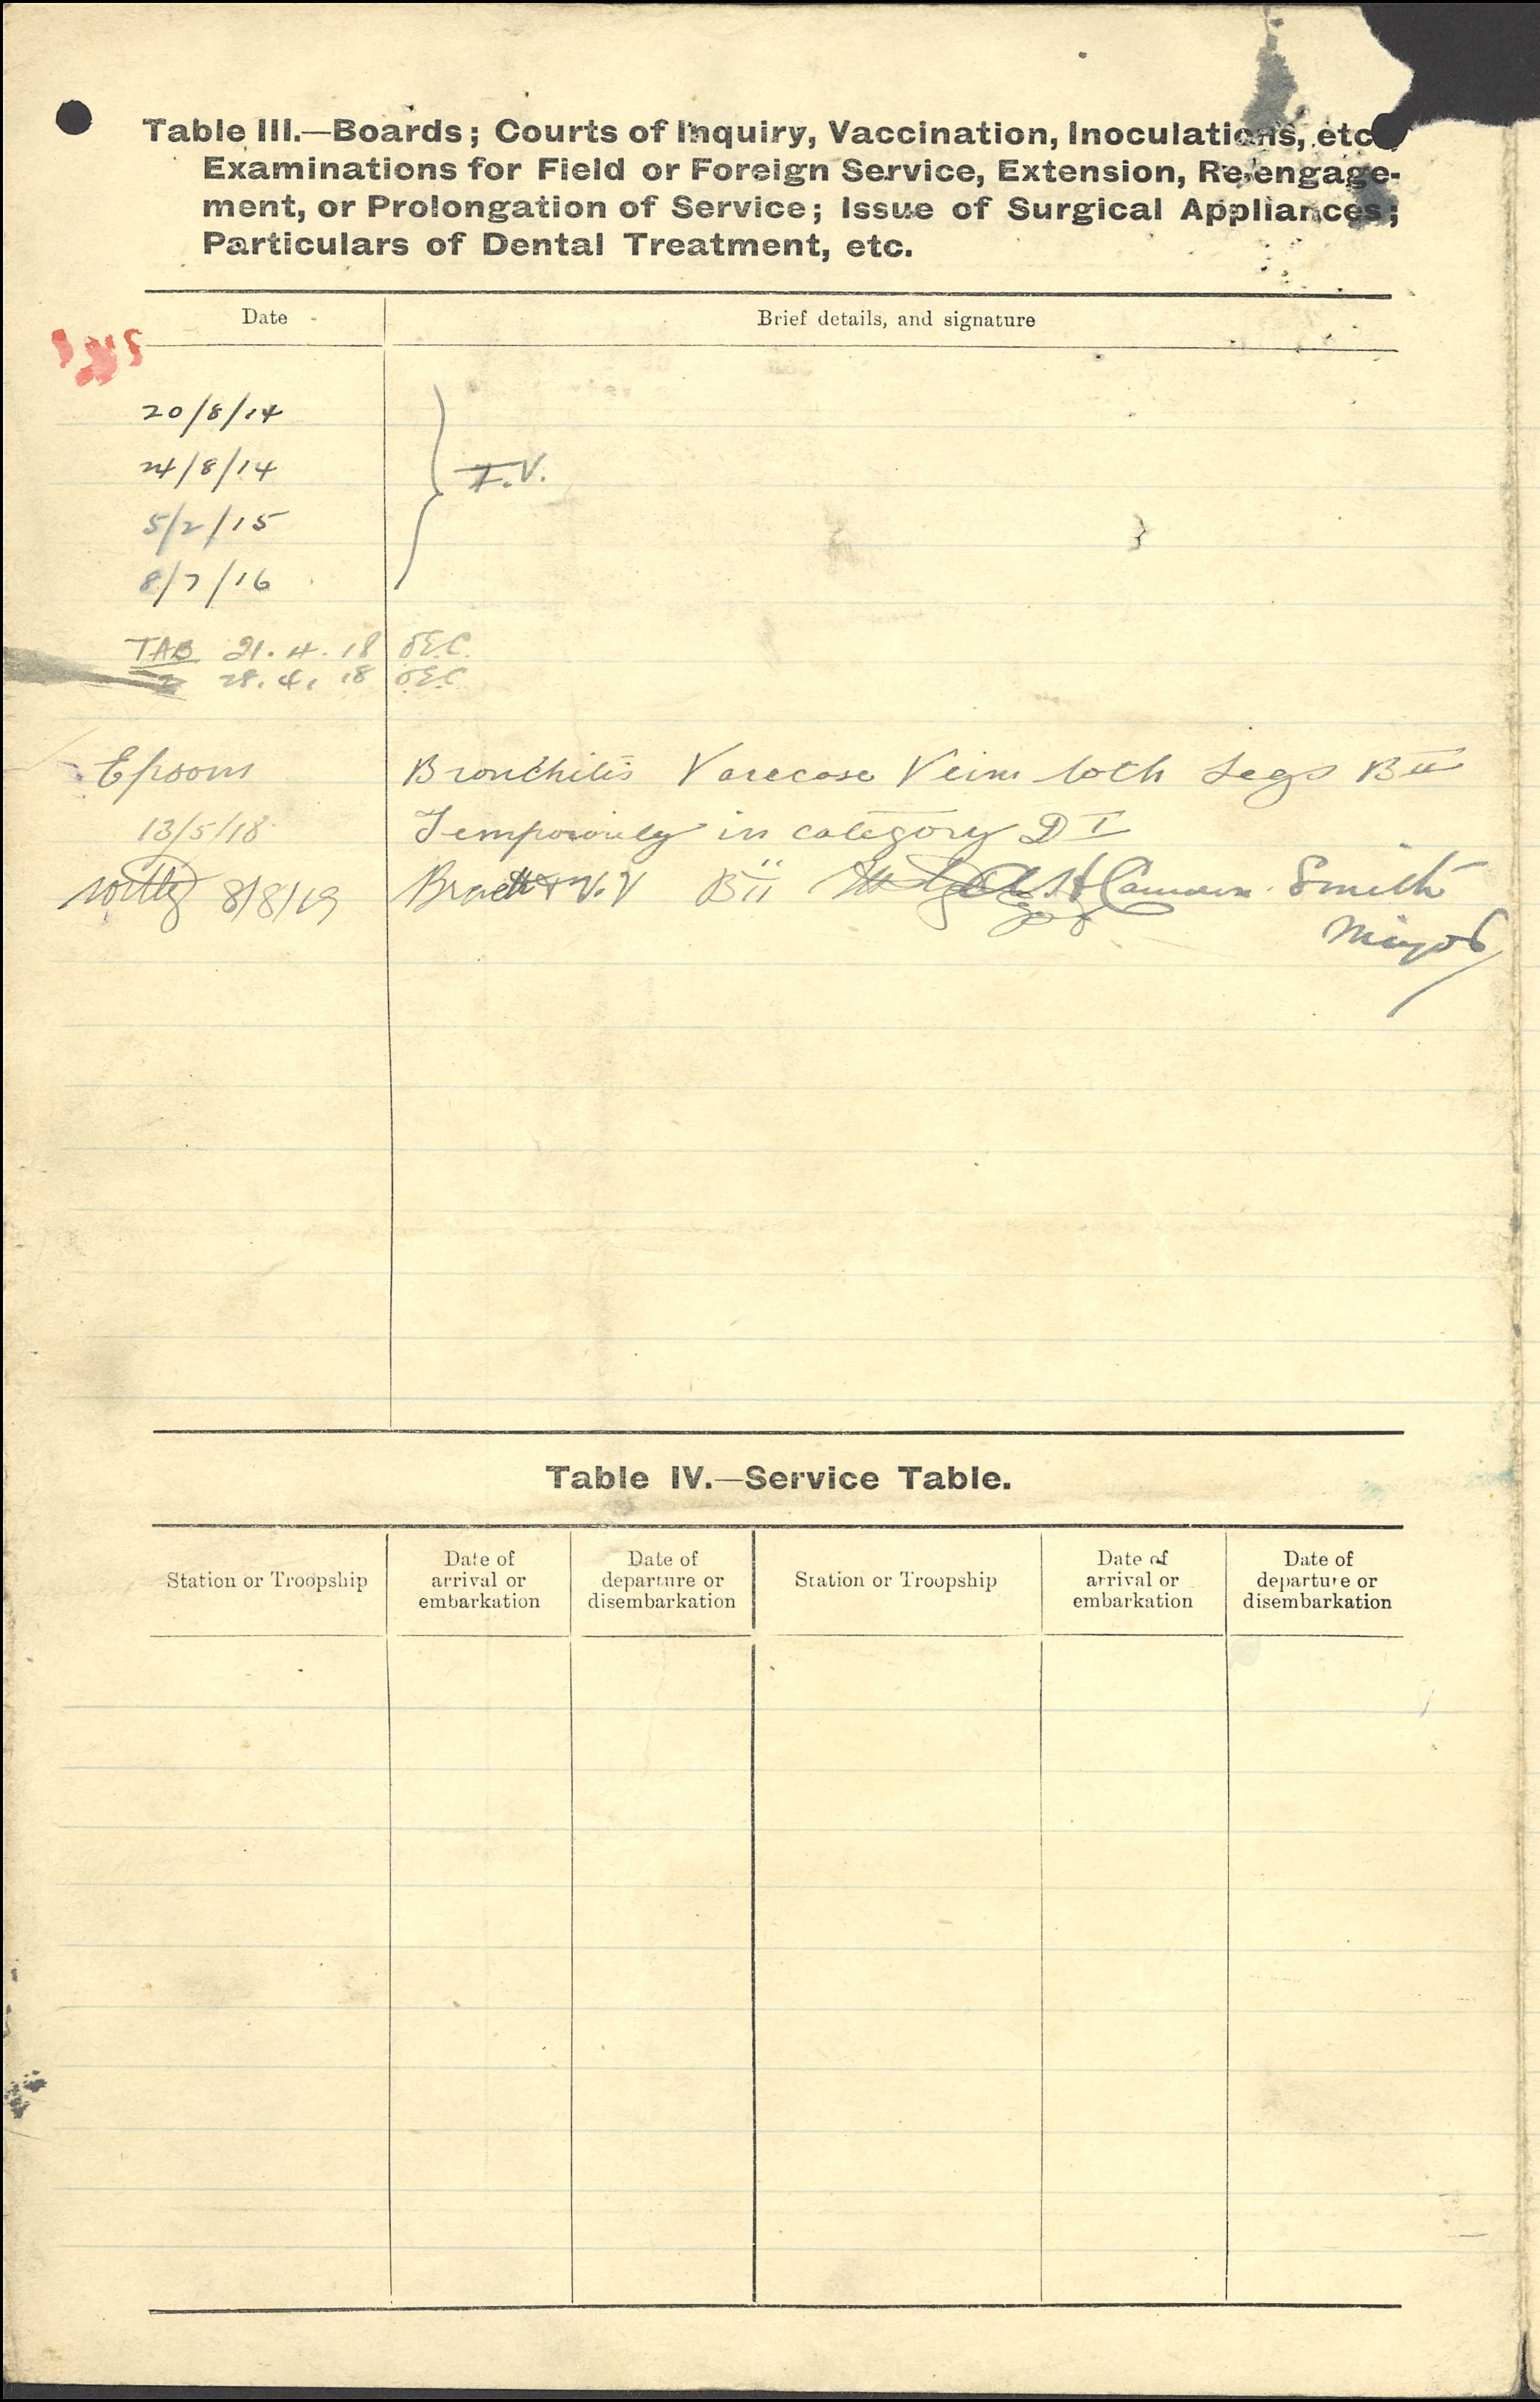 Table III.—Boards; Courts of Inquiry, Vaccination, Inoculations, etc.
Examinations for Field or Foreign Service, Extension, Re-engage-
ment, or Prolongation of Service; Issue of Surgical Appliances;
Particulars of Dental Treatment, etc.
Date Brief details, and signature
20/8/14
24/8/14
T.V.
5/2/15
8/7/16
TAB 21.4.18
28.4.18
Epsom Bronchitis Varecose Veins both Legs BII
13/5/18 Temporarily in category D I
Witley 8/8/19 V.V Bii Cameron Smith
Major
Table IV.—Service Table.
Station or Troopship Date of arrival or embarkation Date of departure or disembarkation Station or Troopship Date of arrival or embarkation Date of departure or disembarkation